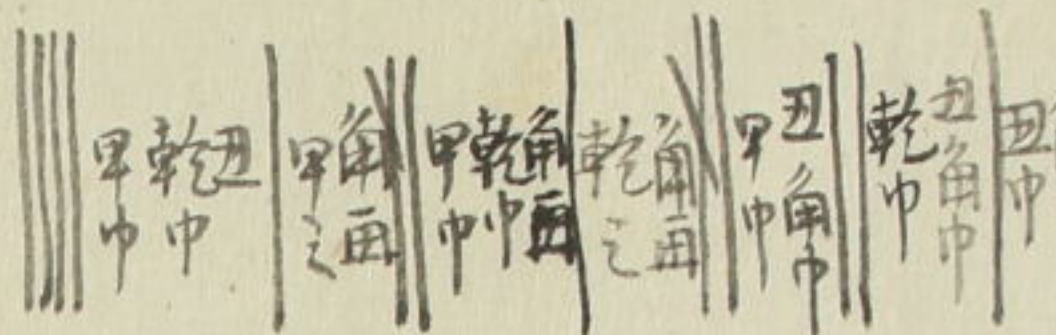 丑巾
丑角巾
乾巾
丑角巾
甲巾
角再
乾之
角再
乾巾
甲巾
角再
甲之
丑
乾巾
甲巾